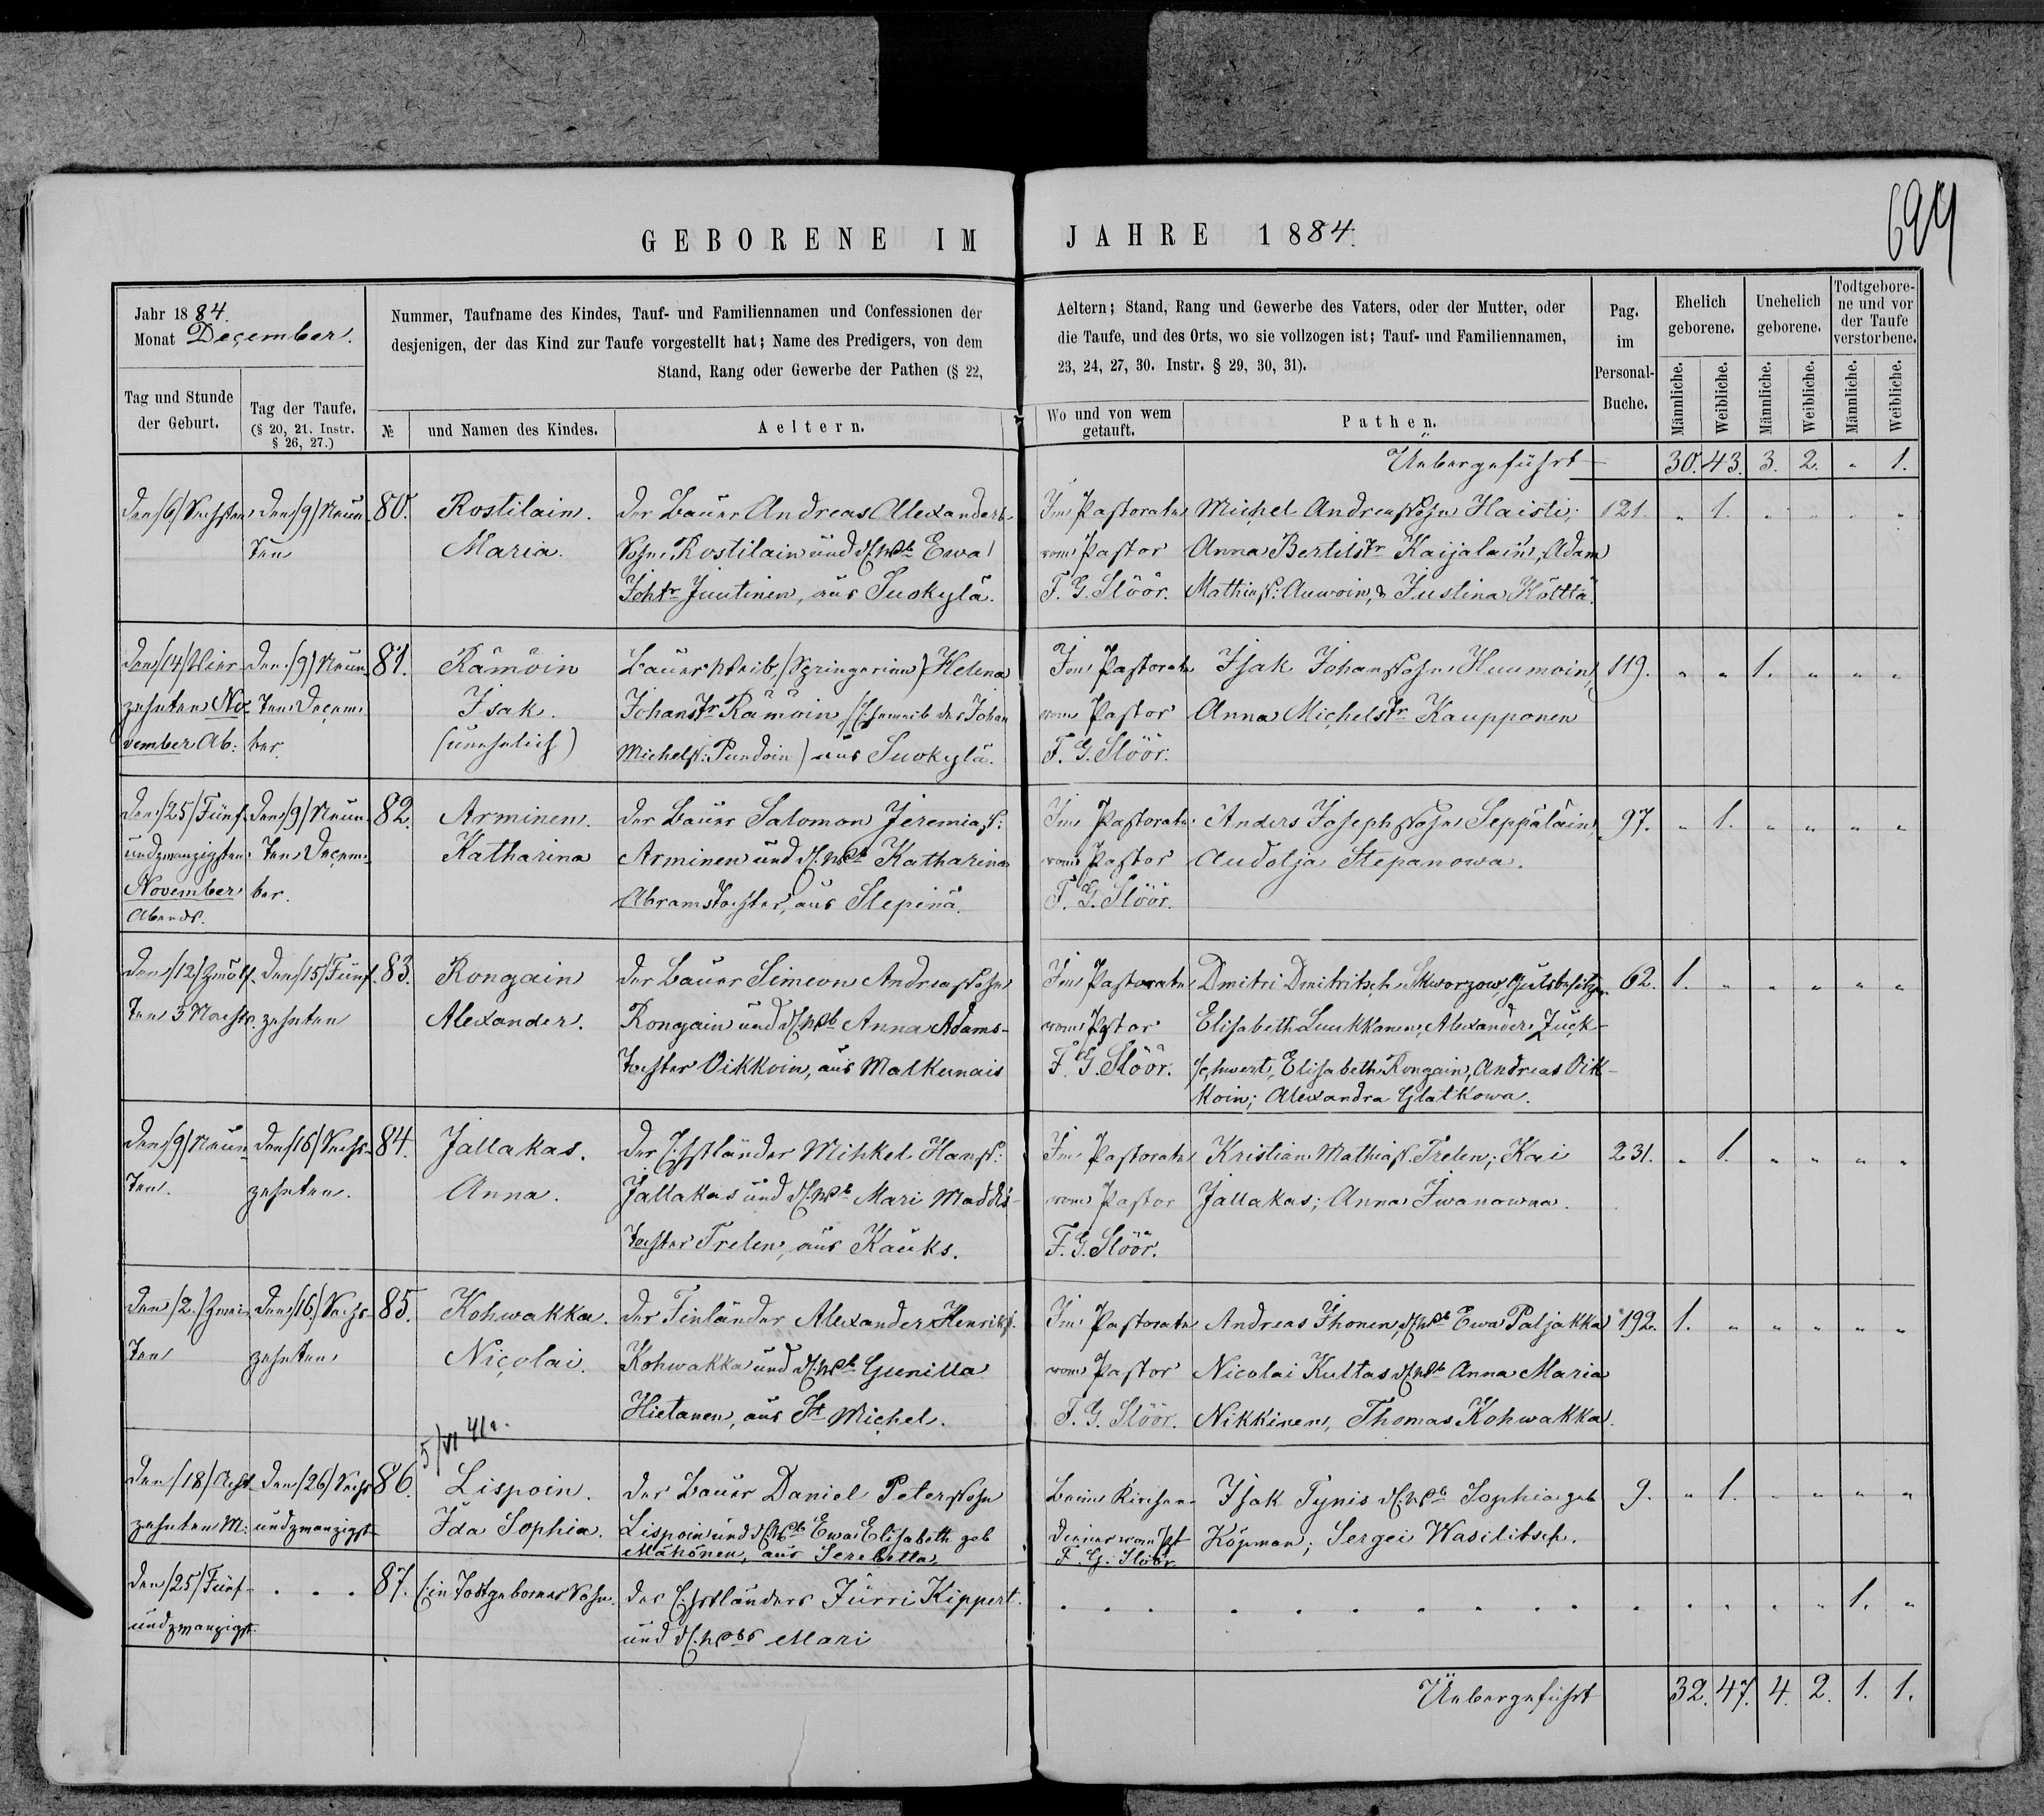 GEBORENE IM JAHRE 1884.
694
Jahr 1884.
Monat December.
Nummer, Taufname des Kindes, Tauf- und Familiennamen und Confessionen der
desjenigen, der das Kind zur Taufe vorgestellt hat; Name des Predigers, von dem
Stand, Rang oder Gewerbe der Pathen (§ 22,
Aeltern; Stand, Rang und Gewerbe des Vaters, oder der Mutter, oder
die Taufe, und des Orts, wo sie vollzogen ist; Tauf- und Familiennamen,
23, 24, 27, 30. Instr. § 29, 30, 31).
Pag.
im
Personal-
Buche.
Ehelich
geborene.
Unehelich
geborene.
Todtgebore-
ne und vor
der Taufe
verstorbene.
Tag und Stunde
der Geburt.
Tag der Taufe.
(§ 20, 21. Instr.
§ 26, 27.)
№
und Namen des Kindes.
Aeltern.
Wo und von wem
getauft.
Pathen.
Männliche.
Weibliche.
Männliche.
Weibliche.
Männliche.
Weibliche.
Uebergeführt 30. 43. 3. 2. " 1.
den (6) Sechsten
den (9) Neun-
ten
80.
Rostilain.
Maria.
der Bauer Andreas Alexanders-
sohn Rostilain und dss. Wb. Ewa
Joh.tr Juutinen, aus Suokylä.
Im Pastorate
vom Pastor
F. G. Slöör.
Michel Andreassohn Haisti;
Anna Bertilstr Kaijalain; Adam
Mathiass: Auwoin, & Justina Köttä.
121. " 1. " " " "
den (14) Vier-
zehnten No-
vember Ab:
den (9) Neun-
ten Decem-
ber.
81.
Rämöin
Isak.
(unehelich)
Bauersweib, (Springerinn) Helena
Johanstr Rämöin (Eheweib des Johan
Michelss: Pundoin) aus Suokylä.
Im Pastorate
vom Pastor
F. G. Slöör.
Isak Johanssohn Huumoin,
Anna Michelstr Kaupponen
119. " " 1. " " "
den (25) Fünf-
undzwanzigsten
November
Abends.
den (9) Neun-
ten Decem-
ber.
82.
Arminen.
Katharina
der Bauer Salomon Jeremiass:
Arminen und dss. Wb. Katharina
Abramstochter, aus Slepinä.
Im Pastorate
vom Pastor
F. G. Slöör.
Anders Josephssohn Seppäläin,
Audotja Stepanowa.
97. " 1. " " " "
den (12) Zwölf-
ten 3 Nachts.
den (15) Fünf-
zehnten
83.
Rongain
Alexander.
der Bauer Simeon Andreassohn
Rongain und dss. Wb. Anna Adams-
tochter Oikkoin, aus Malkunais
Im Pastorate
vom Pastor
F. G. Slöör.
Dmitri Dmitritsch Skworzow, Gutsbesitzer
Elisabeth Luukkanen, Alexander Zuck-
schwert, Elisabeth Rongain, Andreas Oik-
koin; Alexandra Glatkowa.
62. 1. " " " " "
den (9) Neun-
ten.
den (16) Sechs-
zehnten.
84.
Jallakas.
Anna.
der Ehstländer Mihkel Hanss:
Jallakas und dss. Wb. Mari Maddis-
tochter Trelen, aus Kauks.
Im Pastorate
vom Pastor
F. G. Slöör.
Kristian Mathiass. Trelen; Kai
Jallakas; Anna Iwanowna.
231. " 1. " " " "
den (2.) Zwei-
ten
den (16.) Sechs-
zehnten
85.
Kohwakka.
Nicolai.
der Finländer Alexander Henrikss.
Kohwakka und dss. Wb. Gunilla
Hietanen, aus St Michel.
Im Pastorate
vom Pastor
F. G. Slöör.
Andreas Ihonen, dss. Wb. Ewa Paljakka
Nicolai Kultas dss. Wb. Anna Maria
Nikkinen, Thomas Kohwakka.
192. 1. " " " " "
5/VI 41.
den (18) Acht-
zehnten M:
den (26) Sechs
undzwanzigst-
86.
Lispoin.
Ida Sophia.
der Bauer Daniel Peterssohn
Lispoin und dss. Wb. Ewa Elisabeth geb
Mähönen, aus Serebetta,
Beim Kirchen-
diener vom Pst
F. G. Slöör.
Isak Tynis dss. Wb. Sophia geb
Köpman; Sergei Wasilitsch.
9. " 1. " " " "
den (25) Fünf-
undzwanzigst-
. . .
87.
Ein Todtgeborner Sohn.
des Ehstländers Jürri Kippert
und dss. Wbs Mari
. . . . . . . . . . . " " " " 1. "
Uebergeführt 32. 47. 4. 2. 1. 1.